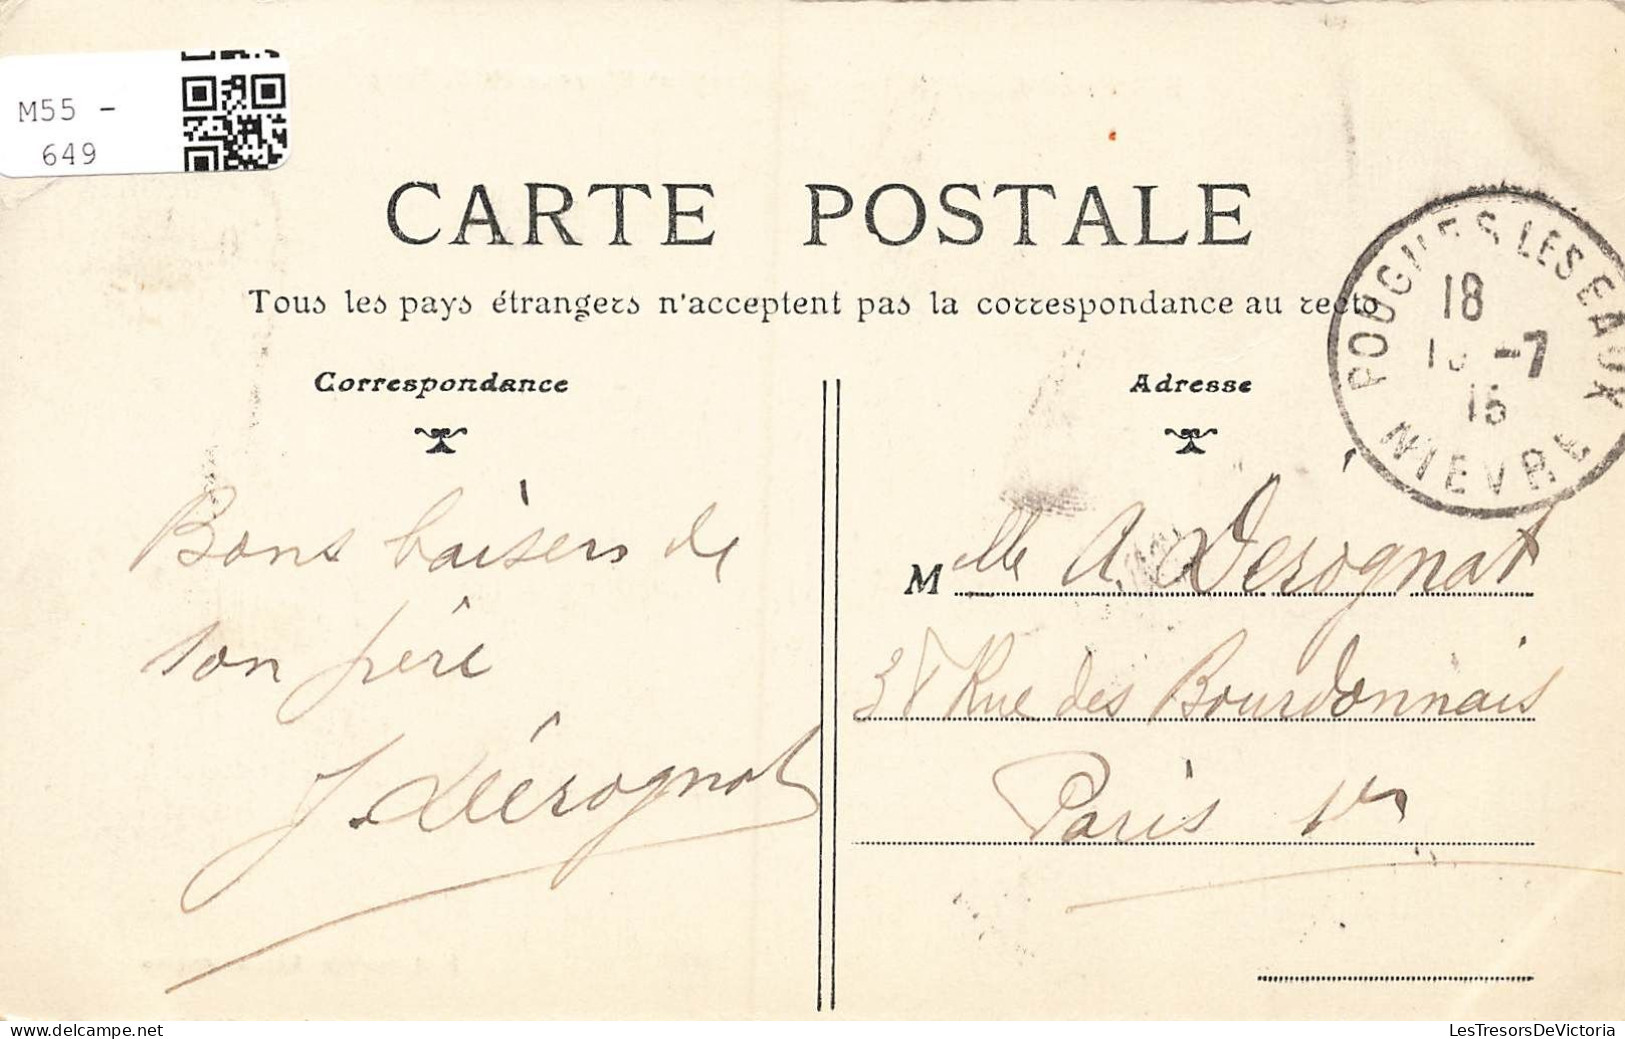 M55 -
649
CARTE POSTALE
Tous les pays étrangers n'acceptent pas la correspondance au recto
Correspondance
Adresse
POUGUES LES EAUX
18
-7
15
NIEVRE
Bons baisers de
ton père
J. Dérognat
Mlle A Dérognat
38 Rue des Bourdonnais
Paris 1er
www.delcampe.net
LesTresorsDeVictoria